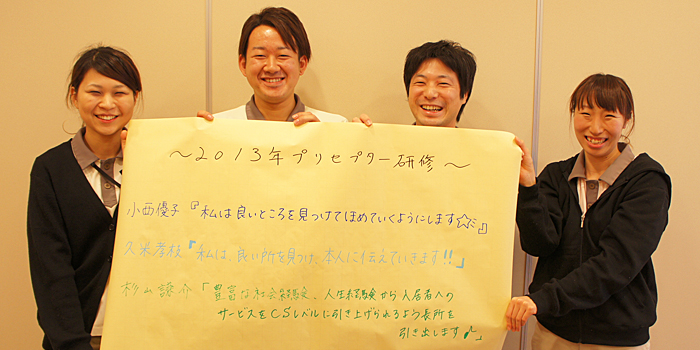 ～2013年プリセプター研修～
小西優子『私は良いところを見つけてほめていくようにします☆彡』
久米孝枝『私は、良い所を見つけ、本人に伝えていきます!!」
杉山謙介「豊富な社会経験、人生経験から入居者への
サービスをCSレベルに引き上げられるよう長所を
引き出します♪」